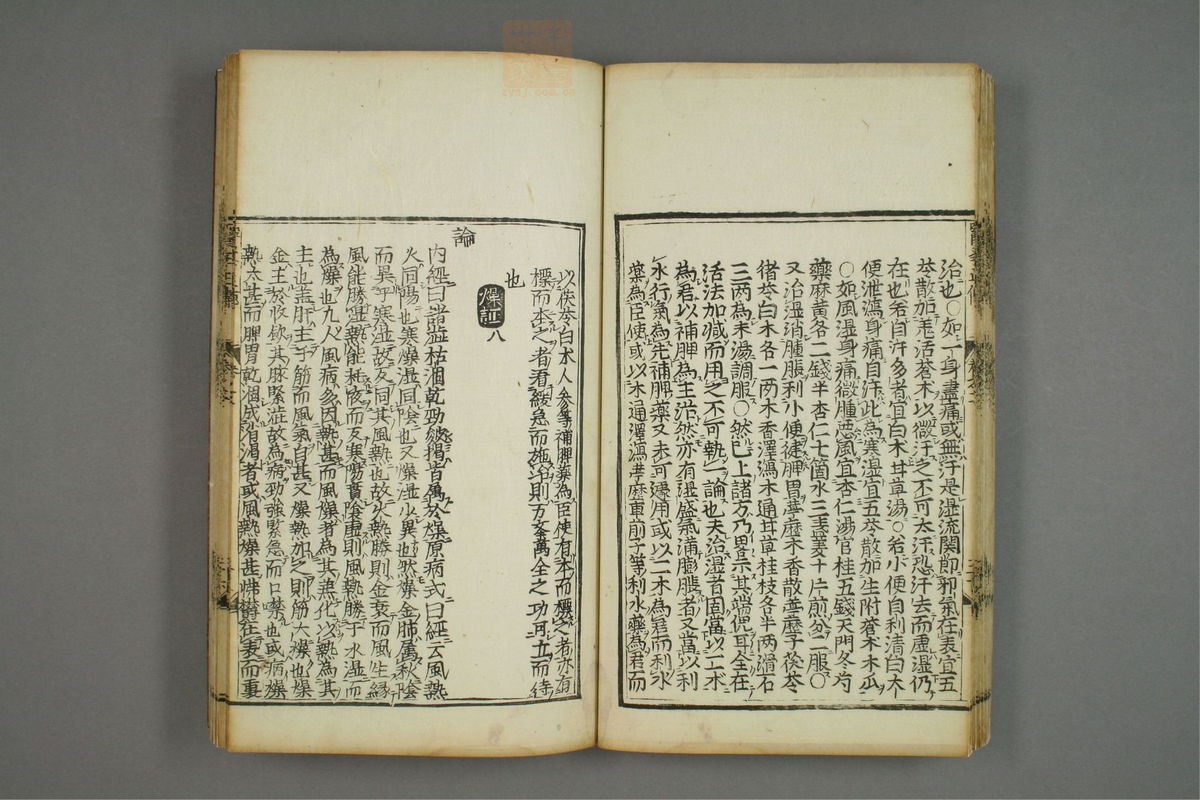 治也○如一身盡痛或無汗是湿流関節邪氣在表宜五
苓散加羌活蒼木以微汗之不可大汗恐汗去而虚湿仍
在也若自汗多者宜白木甘草湯○若小便自利清白大
便泄瀉身痛自汗此為寒湿宜五苓散加生附蒼木木瓜
○如風湿身痛微腫惡風宜杏仁湯官桂五錢天門冬芍
藥麻黄各二錢半杏仁七箇水三盞姜十片煎分二服○
又治湿消腫脹利小便徤脾胃葶藶木香散葶藶子茯苓
猪苓白木各一两木香澤瀉木通甘草桂枝各半两滑石
三两為末湯調服○然已上諸方乃畧示其端倪耳全在
活法加减而用之不可執一論也夫治湿者固當以二木
為君以補脾為主治然亦有湿盛氣滿膨脹者又當以利
水行氣為先補脾藥又未可遽用或以二木為君而利水
藥為臣使或以木通澤瀉葶藶車前子等利水藥為君而
以茯苓白木人參等補脾藥為臣使有本而標之者亦有
標而本之者看緩急而施治則万全之功可立而待
也
燥証 八
論
内經曰諸澁枯涸乾勁皴揭皆属於燥原病式曰經云風熱
火同陽也寒燥湿同陰也又燥湿小異也然燥金肺属秋陰
而異乎寒湿故反同其風熱也故火熱勝則金衰而風生縁
風能勝湿熱能耗液而反寒陽實陰虚則風熱勝于水湿而
為燥也凡人風病多因熱甚而風燥者為其兼化以熱為其
主也盖肝主于筋而風氣自甚又燥熱加之則筋大燥也燥
金主於收斂其脉緊澁故為病勁強緊急而口噤也或病燥
熱太甚而脾胃乾涸成消渇者或風熱燥甚怫欝在表而裏